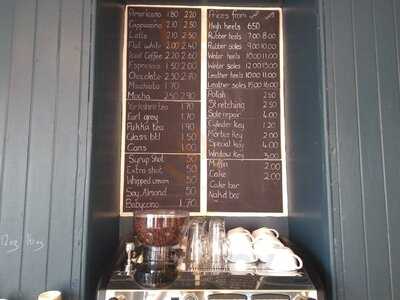 Americano 1.80 2.20
Cappuccino 2.10 2.50
Latte 2.10 2.50
Flat white 2.00 2.40
Iced Coffee 2.20 2.60
Espresso 1.50 2.00
Chocolate 2.30 2.70
Machiato 1.70
Mocha 2.50 2.90
Yorkshire tea 1.70
Earl grey 1.70
Pukka tea 1.90
Glass btl 1.50
Cans 1.00
Syrup Shot 50
Extra shot 50
Whipped cream 50
Soy, Almond 50
Babycino 1.70
Prices from
High heels 6.50
Rubber heels 7.00 8.00
Rubber soles 9.00 10.00
Winter heels 10.00 11.00
Winter soles 12.00 13.00
Leather heels 10.00 11.00
Leather soles 15.00 16.00
Polish 2.50
Stretching 2.50
Sole repair 4.00
Cylinder key 1.20
Mortice Key 2.00
Special key 4.00
Window Key 3.00
Muffin 2.00
Cake 2.00
Cake bar
Nakd bar
12oz 16oz